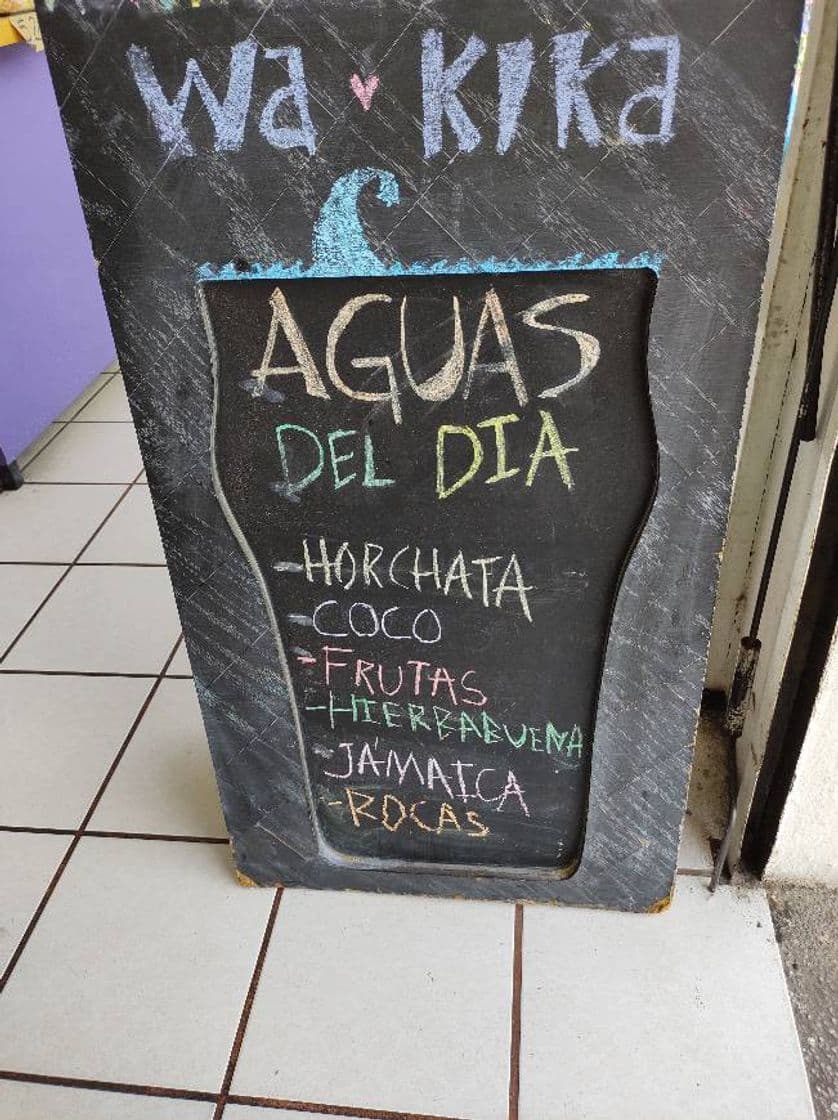 Wa Kika
AGUAS
DEL DIA
-HORCHATA
-COCO
-FRUTAS
-HIERBABUENA
-JAMAICA
-ROCAS